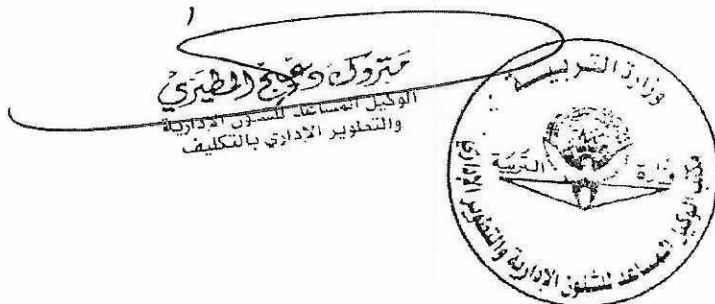 متروك دعوج المطيري
الوكيل المساعد للشئون الإدارية
والتطوير الإداري بالتكليف
وزارة التربية
وزارة التربية
مكتب الوكيل المساعد للشئون الإدارية والتطوير الإداري